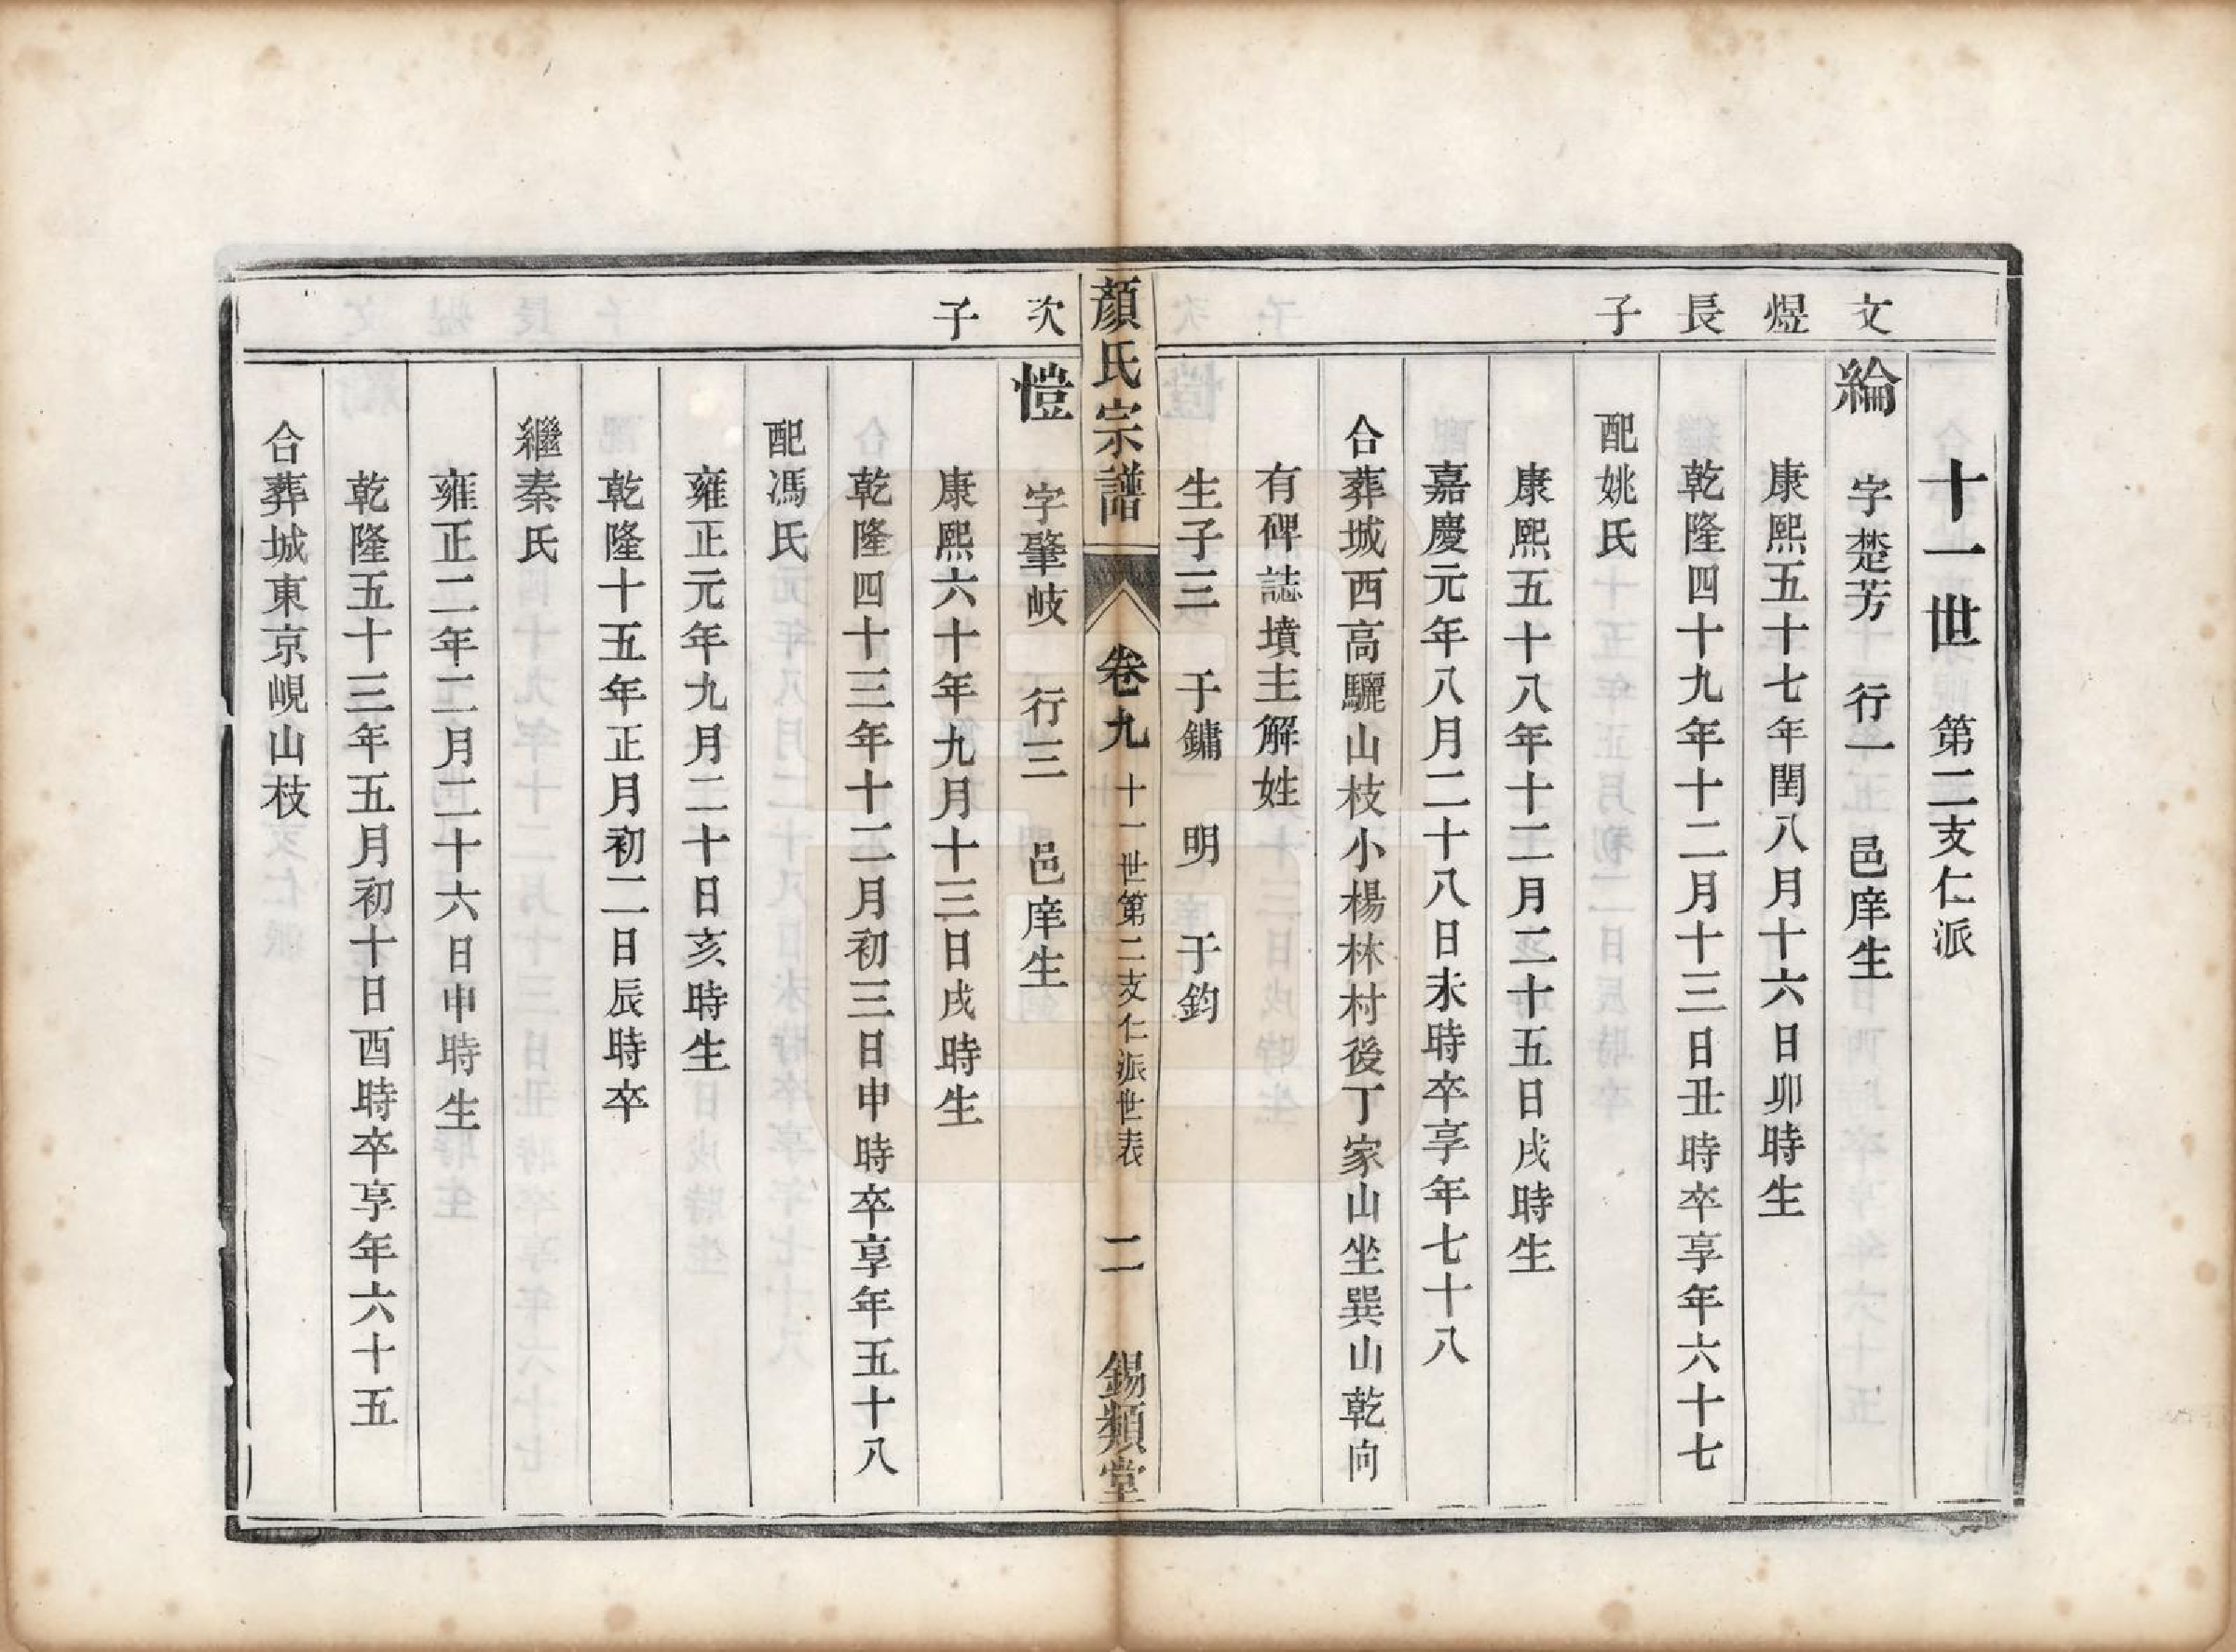 十一世 第二支仁派
文煜長子
綸 字楚芳 行一 邑庠生
康熙五十七年閏八月十六日卯時生
乾隆四十九年十二月十三日丑時卒享年六十七
配姚氏
康熙五十八年十二月二十五日戌時生
嘉慶元年八月二十八日未時卒享年七十八
合葬城西高驪山枝小楊林村後丁家山坐巽山乾向
有碑誌墳主解姓
生子三 于鏞 明 于鈞
顏氏宗譜 卷九 十一世第二支仁派世表 二 錫類堂
次子
愷 字肇岐 行三 邑庠生
康熙六十年九月十三日戌時生
乾隆四十三年十二月初三日申時卒享年五十八
配馮氏
雍正元年九月二十日亥時生
乾隆十五年正月初二日辰時卒
繼秦氏
雍正二年二月二十六日申時生
乾隆五十三年五月初十日酉時卒享年六十五
合葬城東京峴山枝